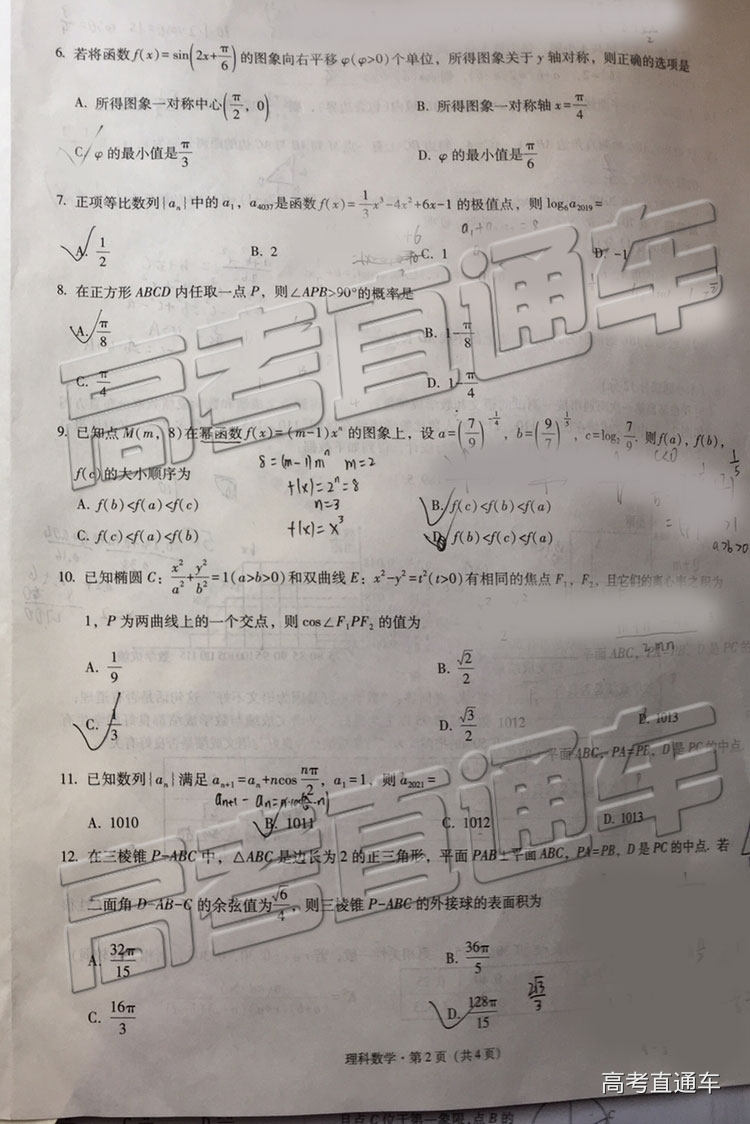 6. 若将函数 f(x)=sin(2x+π/6) 的图象向右平移 φ(φ>0)个单位，所得图象关于 y 轴对称，则正确的选项是
A. 所得图象一对称中心(π/2, 0) B. 所得图象一对称轴 x=π/4
C. φ 的最小值是π/3 D. φ 的最小值是π/6
7. 正项等比数列{aₙ}中的 a₁，a₄₀₃₇是函数 f(x)=1/3x³-4x²+6x-1 的极值点，则 log₆a₂₀₁₉=
A. 1/2 B. 2 C. 1 D. -1
8. 在正方形 ABCD 内任取一点 P，则∠APB>90°的概率是
A. π/8 B. 1-π/8
C. π/4 D. 1-π/4
9. 已知点 M(m, 8)在幂函数 f(x)=(m-1)xⁿ 的图象上，设 a=(7/9)^(-1/4)，b=(9/7)^(1/3)，c=log₂7/9. 则f(a)，f(b)，
f(c)的大小顺序为
8=(m-1)mⁿ m=2
f(x)=2ⁿ=8
n=3
f(x)=x³
A. f(b)<f(a)<f(c) B. f(c)<f(b)<f(a)
C. f(c)<f(a)<f(b) D. f(b)<f(c)<f(a)
c<0
a>b>0
10. 已知椭圆 C：x²/a²+y²/b²=1(a>b>0)和双曲线 E：x²-y²=t²(t>0)有相同的焦点 F₁，F₂，且它们的离心率之积为
1，P 为两曲线上的一个交点，则 cos∠F₁PF₂ 的值为
平面 ABC, D 是 PC的
2mn
A. 1/9 B. √2/2
C. 1/3 D. √3/2 1012 D. 1013
平面 ABC，PA=PB，D是PC的中点
11. 已知数列{aₙ}满足 aₙ₊₁=aₙ+ncos nπ/2，a₁=1，则 a₂₀₂₁=
aₙ₊₁-aₙ=
A. 1010 B. 1011 C. 1012 D. 1013
12. 在三棱锥 P-ABC 中，△ABC 是边长为 2 的正三角形，平面 PAB⊥平面 ABC，PA=PB，D 是 PC 的中点. 若
二面角 D-AB-C 的余弦值为√6/4，则三棱锥 P-ABC 的外接球的表面积为
A. 32π/15 B. 36π/5
C. 16π/3 D. 128π/15
2√3/3
理科数学·第 2 页（共 4 页）
高考直通车
高考直通车
高考直通车
且点 C 位于第一象限，点 B 的